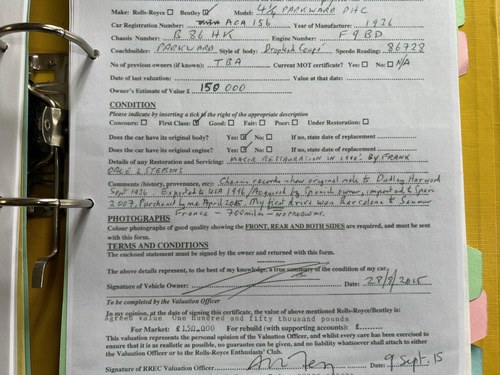 Make: Rolls-Royce Bentley Model: 4¼ PARKWARD DHC
Car Registration Number: AOA 156 Year of Manufacture: 1936
Chassis Number: B 86 HK Engine Number: F9BD
Coachbuilder: PARKWARD Style of body: Drophead Coupé Speedo Reading: 86728
No of previous owners (if known): TBA Current MOT certificate? Yes: No: N/A
Date of last valuation: Value at that date:
Owner's Estimate of Value £ 150 000
CONDITION
Please indicate by inserting a tick to the right of appropriate description
Concours: First Class: Good: Fair: Poor: Under Restoration:
Does the car have its original body? Yes: No: If no, state date of replacement
Does the car have its original engine? Yes: No: If no, state date of replacement
Details of any Restoration and Servicing: MAJOR RESTAURATION IN 1990'. BY FRANK
DALE & STEPSONS
Comments (history, provenance, etc): Chassis records show original sale to Dudley
Sept 1936. Exported to USA 1946/Acquired by Spanish owner, imported to Spain
2007. Purchased by me April 2015. My first drive was Barcelona to Saumur
France – 700 miles – no problems.
PHOTOGRAPHS
Colour photographs of good quality showing the FRONT, REAR AND BOTH SIDES are required, and must be sent
with this form.
TERMS AND CONDITIONS
The enclosed statement must be signed by the owner and returned with this form.
The above details represent, to the best of my knowledge, a true summary of the condition of my car.
Signature of Vehicle Owner: Date: 28/8/2015
To be completed by the Valuation Officer
In my opinion, at the date of signing this certificate, the value of above mentioned Rolls-Royce/Bentley is:
Agreed value One hundred and fifty thousand pounds
For Market: £150,000 For rebuild (with supporting accounts): £
This valuation represents the personal opinion of the Valuation Officer, and whilst every care has been exercised to
ensure that it is as realistic as possible, no guarantee can be given, and no liability whatsoever shall attach to either
the Valuation Officer or to the Rolls-Royce Enthusiasts' Club.
Signature of RREC Valuation Officer Date: 9 Sept. 15